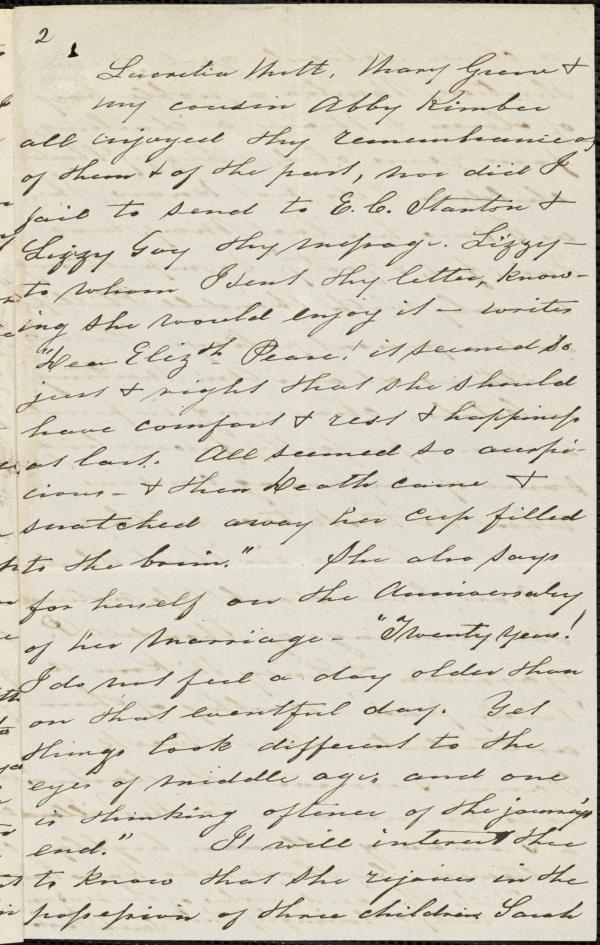 2
Lucretia Mott, Mary Grew &
my cousin Abby Kimber
all enjoyed thy remembrance of
of them & of the past, nor did I
fail to send to E. C. Stanton &
Lizzy Gay thy message. Lizzy—
to whom I sent thy letter, know-
ing she would enjoy it — writes
"Dear Elizth Pease! it seemed so
just & right that she should
have comfort & rest & happiness
at last. All seemed so auspi-
cious — & then Death came &
snatched away her cup filled
to the brim." She also says
for herself on the Anniversary
of her marriage — "Twenty years!
I do not feel a day older than
on that eventful day. Yet
things look different to the
eyes of middle age, and one
is thinking oftener of the journey's
end." It will interest thee
to know that she rejoices in the
possession of three children Sarah